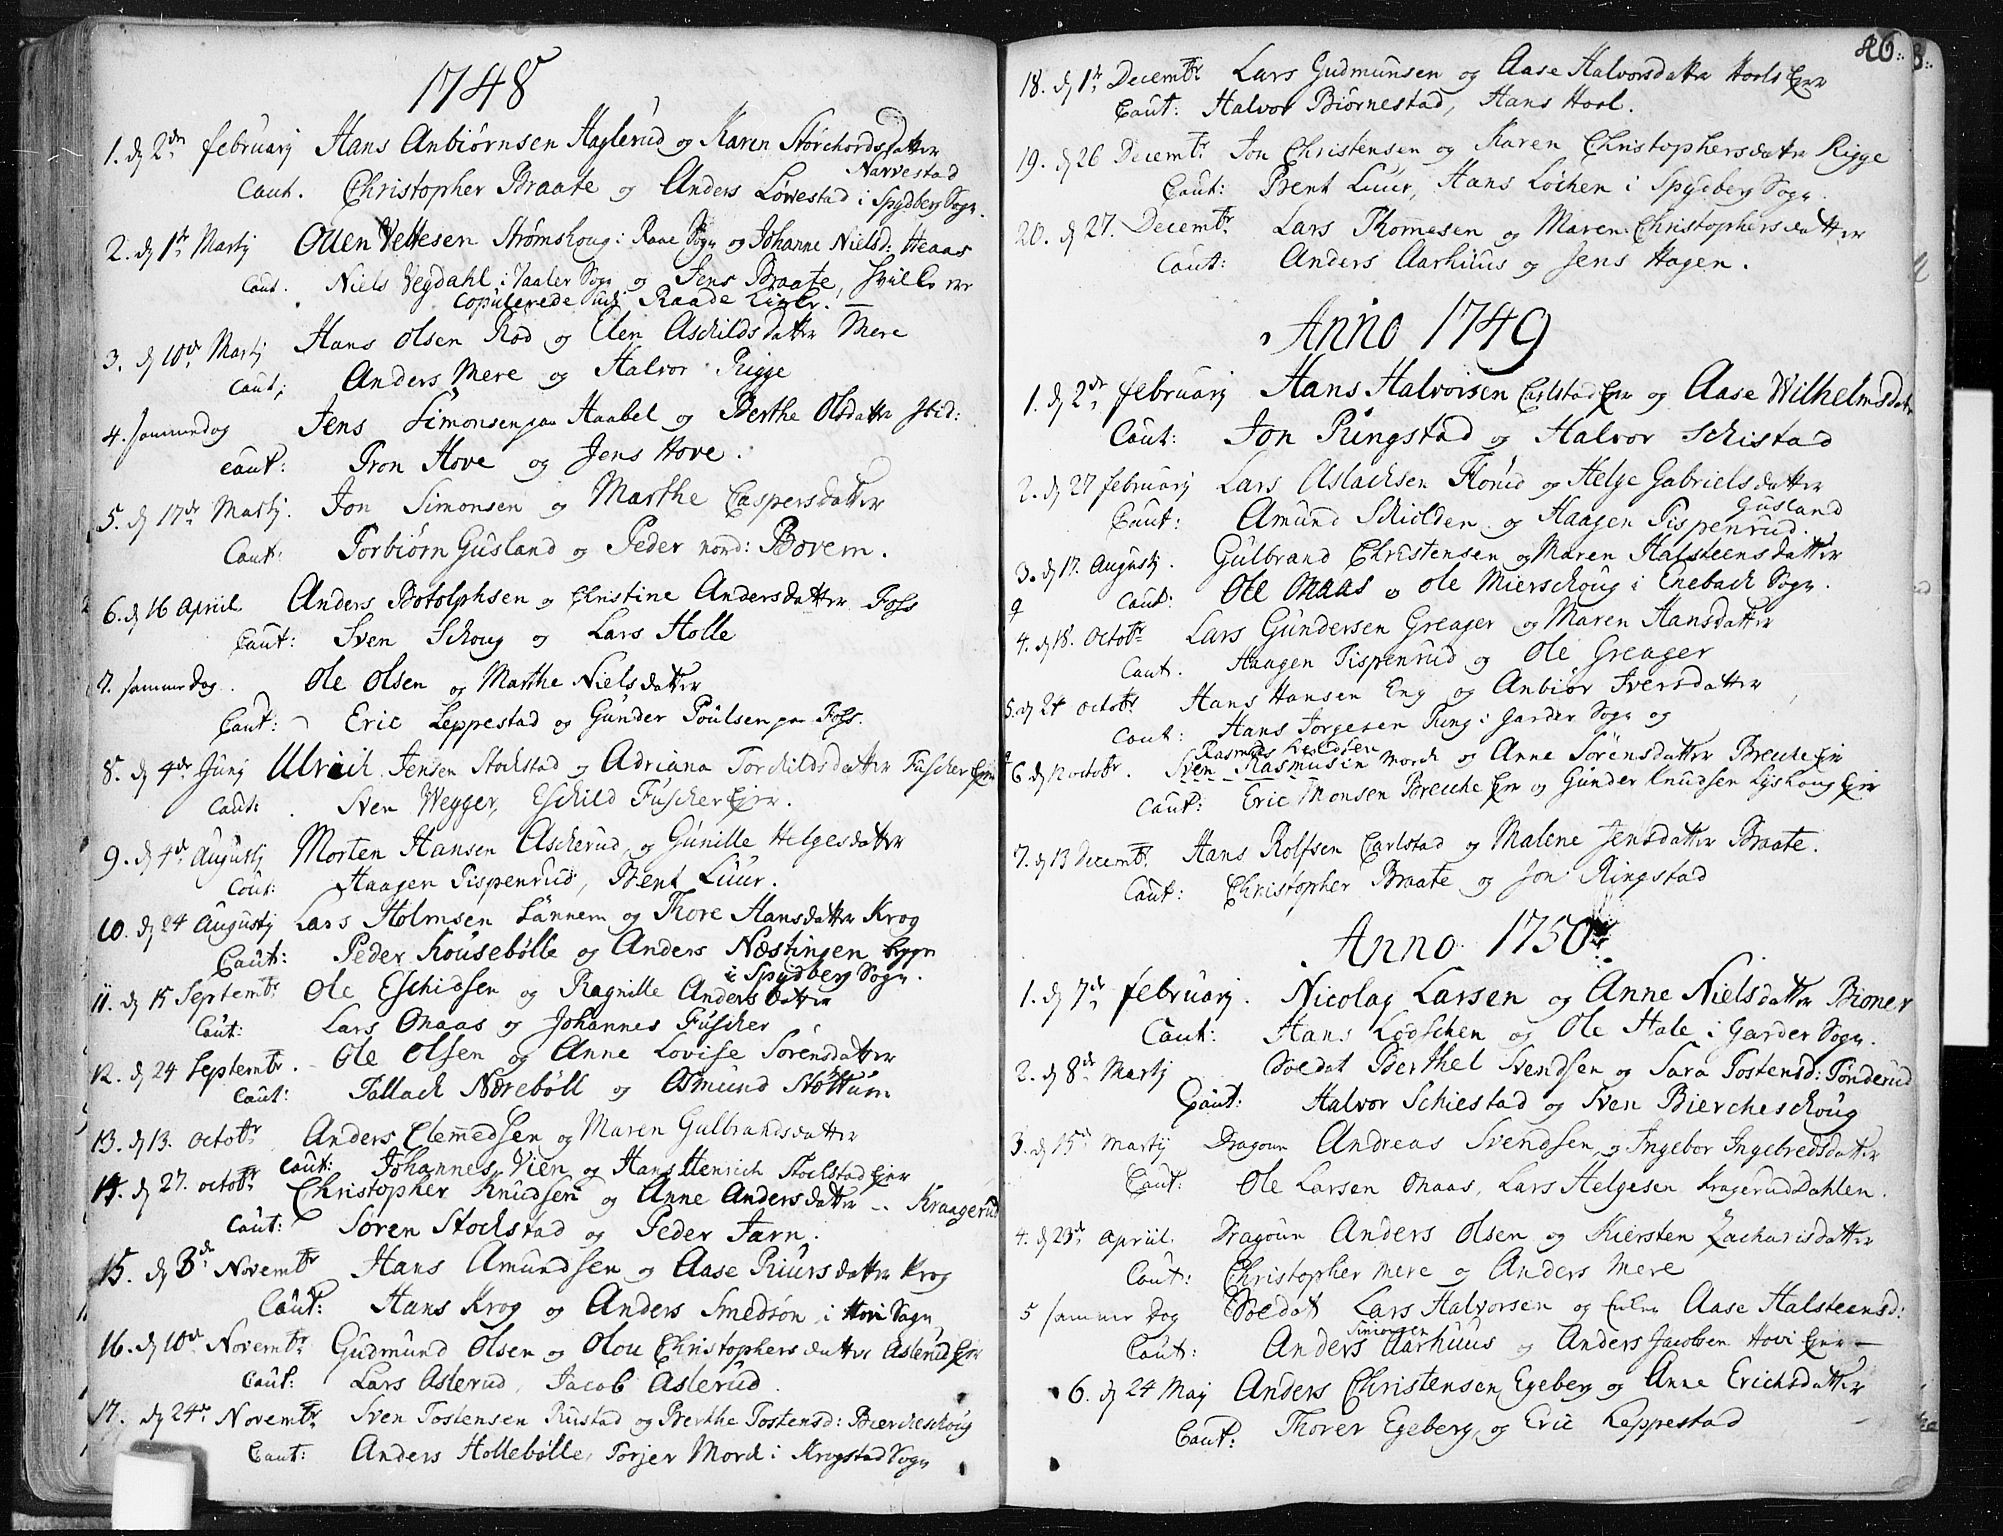 1748
1. dj 2de februarij Hans Anbiørnsen Haglerud og Karen Størchordsdatter
Narvestad
Caut. Christopher Braate og Anders Løvestad i Spydberg Sogn.
2. dj 1te Martij Ollen Vettesen Strømskoug i Raae Sogn og Johanne Nielsd: Heaas
Caut. Niels Vegdahl i Vaaler Sogn og Jens Braate, hville ere
copulerede udj Raade Kirke.
3. dj 10de Martij Hans Olsen Rod og Elen Aschildsdatter Mere
Caut; Anders Mere og Halvor Rigge
4. sammedag Jens Simonsen paa Haabel og Berthe Olsdatter ibid:
Caut: Tron Hove og Jens Hove.
5. dj 17de Martij. Jon Simonsen og Marthe Caspersdatter
Caut: Torbiørn Gusland og Peder nord: Bovem.
6. dj 16 Apriil Anders Botolphsen og Christine Andersdatter Foss
Caut: Sven Schoug og Lars Holle
7. samme dag. Ole Olsen og Marthe Nielsdatter
Caut: Eric Leppestad og Gunder Poulsen paa Foss.
8. dj 4de Junij Ulrich Jensen Stochstad og Adriana Torchildsdatter Fuscher Ejer
Caut. Sven Wegger, Eschild Fuscher Ejer.
9. dj 4de Augustij Morten Hansen Ascherud og Gunille Helgesdatter
Caut: Haagen Tispenrud, Bent Luur.
10. dj 24 Augustij Lars Holmsen Sannem og Thore Hansdatter Krog
Caut: Peder Kousebølle og Anders Næstingen
i Spydberg Sogn.
11. dj 15 Septembr Ole Eschidsen og Ragnille Andersdatter
Caut: Lars Onaas og Johannes Fuscher
12. dj 24 Septembr. Ole Olsen og Anne Lovise Sørensdatter
Caut: Tallach Nærebøll og Asmund Støttum
13. dj 13. Octobr Anders Clemedsen og Maren Gulbrandsdatter
Caut: Johannes Vien og Hans Henrich Stochstad Ejer
14. dj 27. octobr Christopher Knudsen og Anne Andersdatter -- Kraagerud
Caut: Søren Stochstad og Peder Jarn.
15. dj 3de Novembr Hans Amundsen og Aase Riursdatter Krog
Caut: Hans Krog og Anders Smedsøn i Hovi Sogn
16. dj 10de Novembr Gudmund Olsen og Olou Christophersdatter Aslerud Ejer
Caut: Lars Aslerud, Jacob Aslerud.
17. dj 24de Novembr Sven Tostensen Rustad og Berthe Tostensd: Biercheschoug
Caut: Anders Hollebølle, Torjer Mord i Krogstad Sogn
86.
18. dj 1te Decembr Lars Gudmunsen og Aase Halvorsdatter Hoels Ejer
Caut: Halvor Biørnestad, Hans Hoel.
19. dj 26 Decembr Jon Christensen og Karen Christophersdatter Rigge
Caut: Bent Luur, Hans Løchen i Spydberg Sogn.
20. dj 27. Decembr Lars Thomesen og Maren Christophersdatter
Caut: Anders Aarhuus og Jens Hagen.
Anno 1749
1. dj 2de februarij Hans Halvorsen Carlstad Ejer og Aase Wilhelmsdatr
Caut: Jon Ringstad og Halvor Schistad
2. dj 27 februarij Lars Aslachsen Florud og Helge Gabrielsdatter
Gusland
Caut: Amund Schiolden og Haagen Tispenrud.
3. dj 17. Augustj. Gulbrand Christensen og Maren Halsteensdatter
Caut: Ole Onaas og Ole Mierschoug i Enebach Sogn.
4. dj 18. Octobr Lars Gundersen Greager og Maren Hansdatter
Caut. Haagen Tispenrud og Ole Greager
5. dj 24 octobr Hans Hansen Eng og Anbiør Iversdatter
Caut: Hans Jorgesen Rung i Garder Sogn og
Rasmus Svendsen
6. dj 12 octobr. Sven Rasmusen Morch og Anne Sørensdatter Breche Ejer
Caut: Eric Monsen Breche Ejer og Gunder Knudsen Lyskoug Ejer
7. dj 13 Decembr. Hans Rolfsen Carlstad og Malene Jensdatter Braate.
Caut: Christopher Braate og Jon Ringstad
Anno 1750
1. dj 7de februarij. Nicolay Larsen og Anne Nielsdatter Bioner
Caut: Hans Lødschen og Ole Hale i Garder Sogn.
2. dj 8de Martij Soldat Berthel Svendsen og Sara Tostensd: Tønderud
Caut: Halvor Schiestad og Sven Biercheschoug
3. dj 15de Martij Dragoun Andreas Svendsen og Ingebor Ingebredsdatter
Caut: Ole Larsen Onaas, Lars Helgesen Kragerud Dahlen.
4. dj 23de Apriil. Dragoun Anders Olsen og Kiersten Zacharisdatter
Caut: Christopher Mere og Anders Mere
5 sammer dag Soldat Lars Halvorsen og Aase Halsteensd:
Simonsen
Caut: Anders Aarhuus og Anders Jacobsen Hovi Ejer
6. dj 24 Maij Anders Christensen Egeberg og Anne Erichsdatter
Caut: Thorer Egeberg og Eric Leppestad